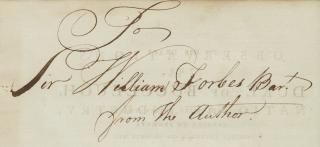 To
Sir William Forbes Bart
from the Author.